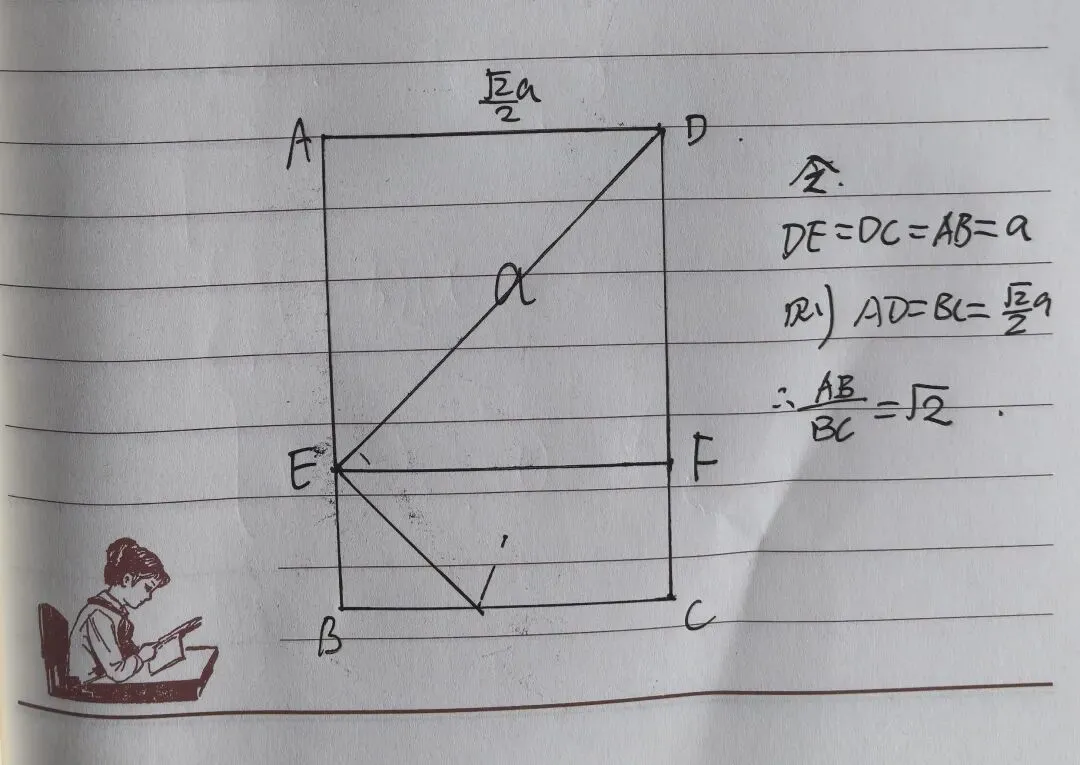 √2/2 a
A
D
a
E
F
B
C
令.
DE=DC=AB=a
则 AD=BC=√2/2 a
∴ AB/BC=√2.